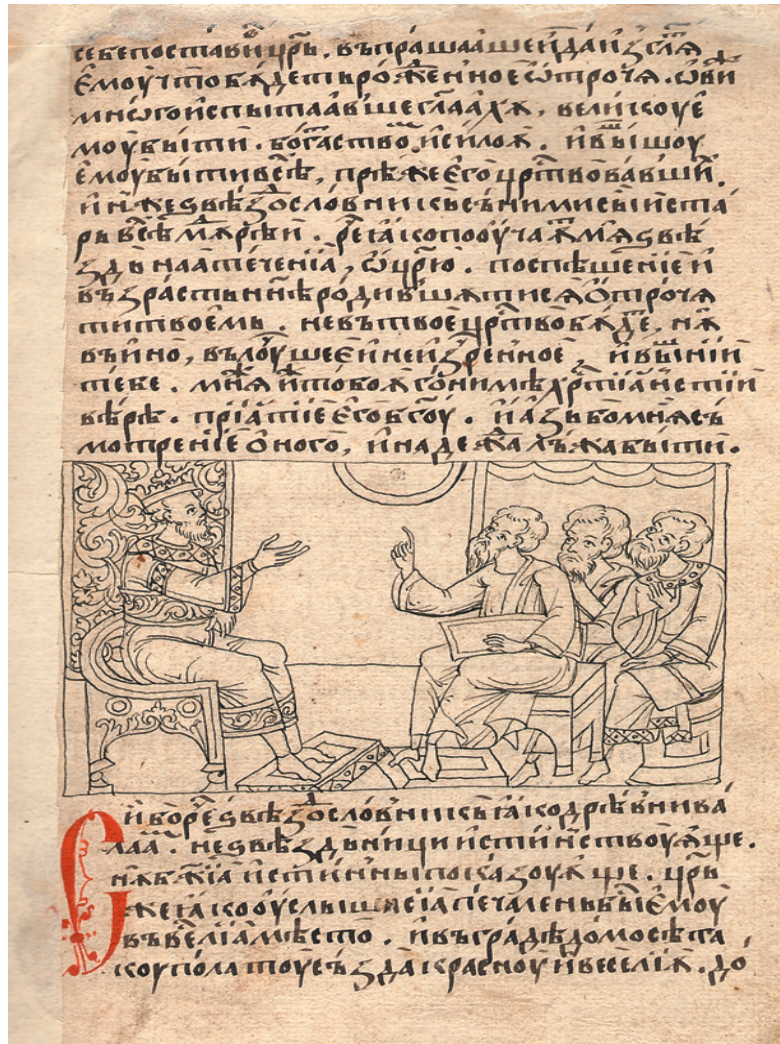 себепостави цр҃ь. въпрашаашеи даизсл҃ѧ
ємоу что бѫдеть рожⷣенное ѡтрочѧ. ѡви
мнѡго испытаавше глаах꙽ѫ, великоу є
моу быти. богаⷭ҇ство и силоѫ. и выⷲшоу
ємоу быти въсѣⷯ, прѣжⷣе єго црⷭ҇твовавшиⷯ.
ѕвѣздословникь съ ними сыи ста
рь въсѣⷯ мѫдрѣи. реⷱ ꙗко поѹчаⷮ мѧ ѕвѣ
здънаа теченїа, ѡ црю. поспѣшенїе и
възрасть н꙽нѣ родившѧтисѧ ѻтрочѧ
ти твоемь. не въ твое црⷭ҇тво бѫдеⷮ, нѫ
въ ино, въ лоучшее и неизреченное, и вышнїи
тебе. мнѧ и тобоѫ гонимѣ хрⷭ҇тїанстїи
вѣрѣ. прїатїе єго бѫдоу. и азъ бо мнѧ съ
мотренїе ѻного, и надежⷣа лъжа быти.
Си бо реⷱ ѕвѣздословникь ꙗко древни ва
лаа. не ѕвѣздъници истинствоуѫще.
нѫ бж҃їа истинны показоуѫще. цр҃ь
же ꙗко ѹслыша сїа печалень быⷭ҇ ємоу
въ велїа мѣсто. и въ градѣ домосѣта
коу полатоу създа красноу и веселїѫ. до